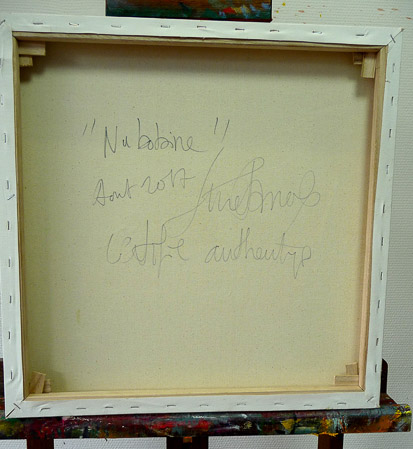 "Nu bobine"
Aout 2017
Certifié authentique